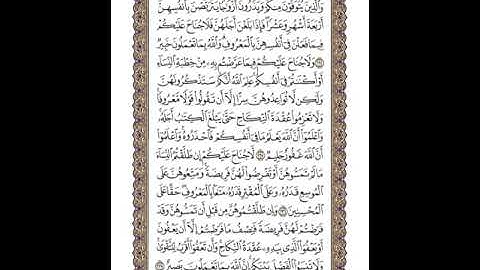 وَالَّذِينَ يُتَوَفَّوْنَ مِنكُمْ وَيَذَرُونَ أَزْوَاجًا يَتَرَبَّصْنَ بِأَنفُسِهِنَّ
أَرْبَعَةَ أَشْهُرٍ وَعَشْرًا فَإِذَا بَلَغْنَ أَجَلَهُنَّ فَلَا جُنَاحَ عَلَيْكُمْ
فِيمَا فَعَلْنَ فِي أَنفُسِهِنَّ بِالْمَعْرُوفِ وَاللَّهُ بِمَا تَعْمَلُونَ خَبِيرٌ
وَلَا جُنَاحَ عَلَيْكُمْ فِيمَا عَرَّضْتُم بِهِ مِنْ خِطْبَةِ النِّسَاءِ
أَوْ أَكْنَنتُمْ فِي أَنفُسِكُمْ عَلِمَ اللَّهُ أَنَّكُمْ سَتَذْكُرُونَهُنَّ
وَلَٰكِن لَّا تُوَاعِدُوهُنَّ سِرًّا إِلَّا أَن تَقُولُوا قَوْلًا مَّعْرُوفًا
وَلَا تَعْزِمُوا عُقْدَةَ النِّكَاحِ حَتَّىٰ يَبْلُغَ الْكِتَابُ أَجَلَهُ
وَاعْلَمُوا أَنَّ اللَّهَ يَعْلَمُ مَا فِي أَنفُسِكُمْ فَاحْذَرُوهُ وَاعْلَمُوا
أَنَّ اللَّهَ غَفُورٌ حَلِيمٌ لَّا جُنَاحَ عَلَيْكُمْ إِن طَلَّقْتُمُ النِّسَاءَ
مَا لَمْ تَمَسُّوهُنَّ أَوْ تَفْرِضُوا لَهُنَّ فَرِيضَةً وَمَتِّعُوهُنَّ عَلَى
الْمُوسِعِ قَدَرُهُ وَعَلَى الْمُقْتِرِ قَدَرُهُ مَتَاعًا بِالْمَعْرُوفِ حَقًّا عَلَى
الْمُحْسِنِينَ وَإِن طَلَّقْتُمُوهُنَّ مِن قَبْلِ أَن تَمَسُّوهُنَّ وَقَدْ
فَرَضْتُمْ لَهُنَّ فَرِيضَةً فَنِصْفُ مَا فَرَضْتُمْ إِلَّا أَن يَعْفُونَ
أَوْ يَعْفُوَ الَّذِي بِيَدِهِ عُقْدَةُ النِّكَاحِ وَأَن تَعْفُوا أَقْرَبُ لِلتَّقْوَىٰ
وَلَا تَنسَوُا الْفَضْلَ بَيْنَكُمْ إِنَّ اللَّهَ بِمَا تَعْمَلُونَ بَصِيرٌ